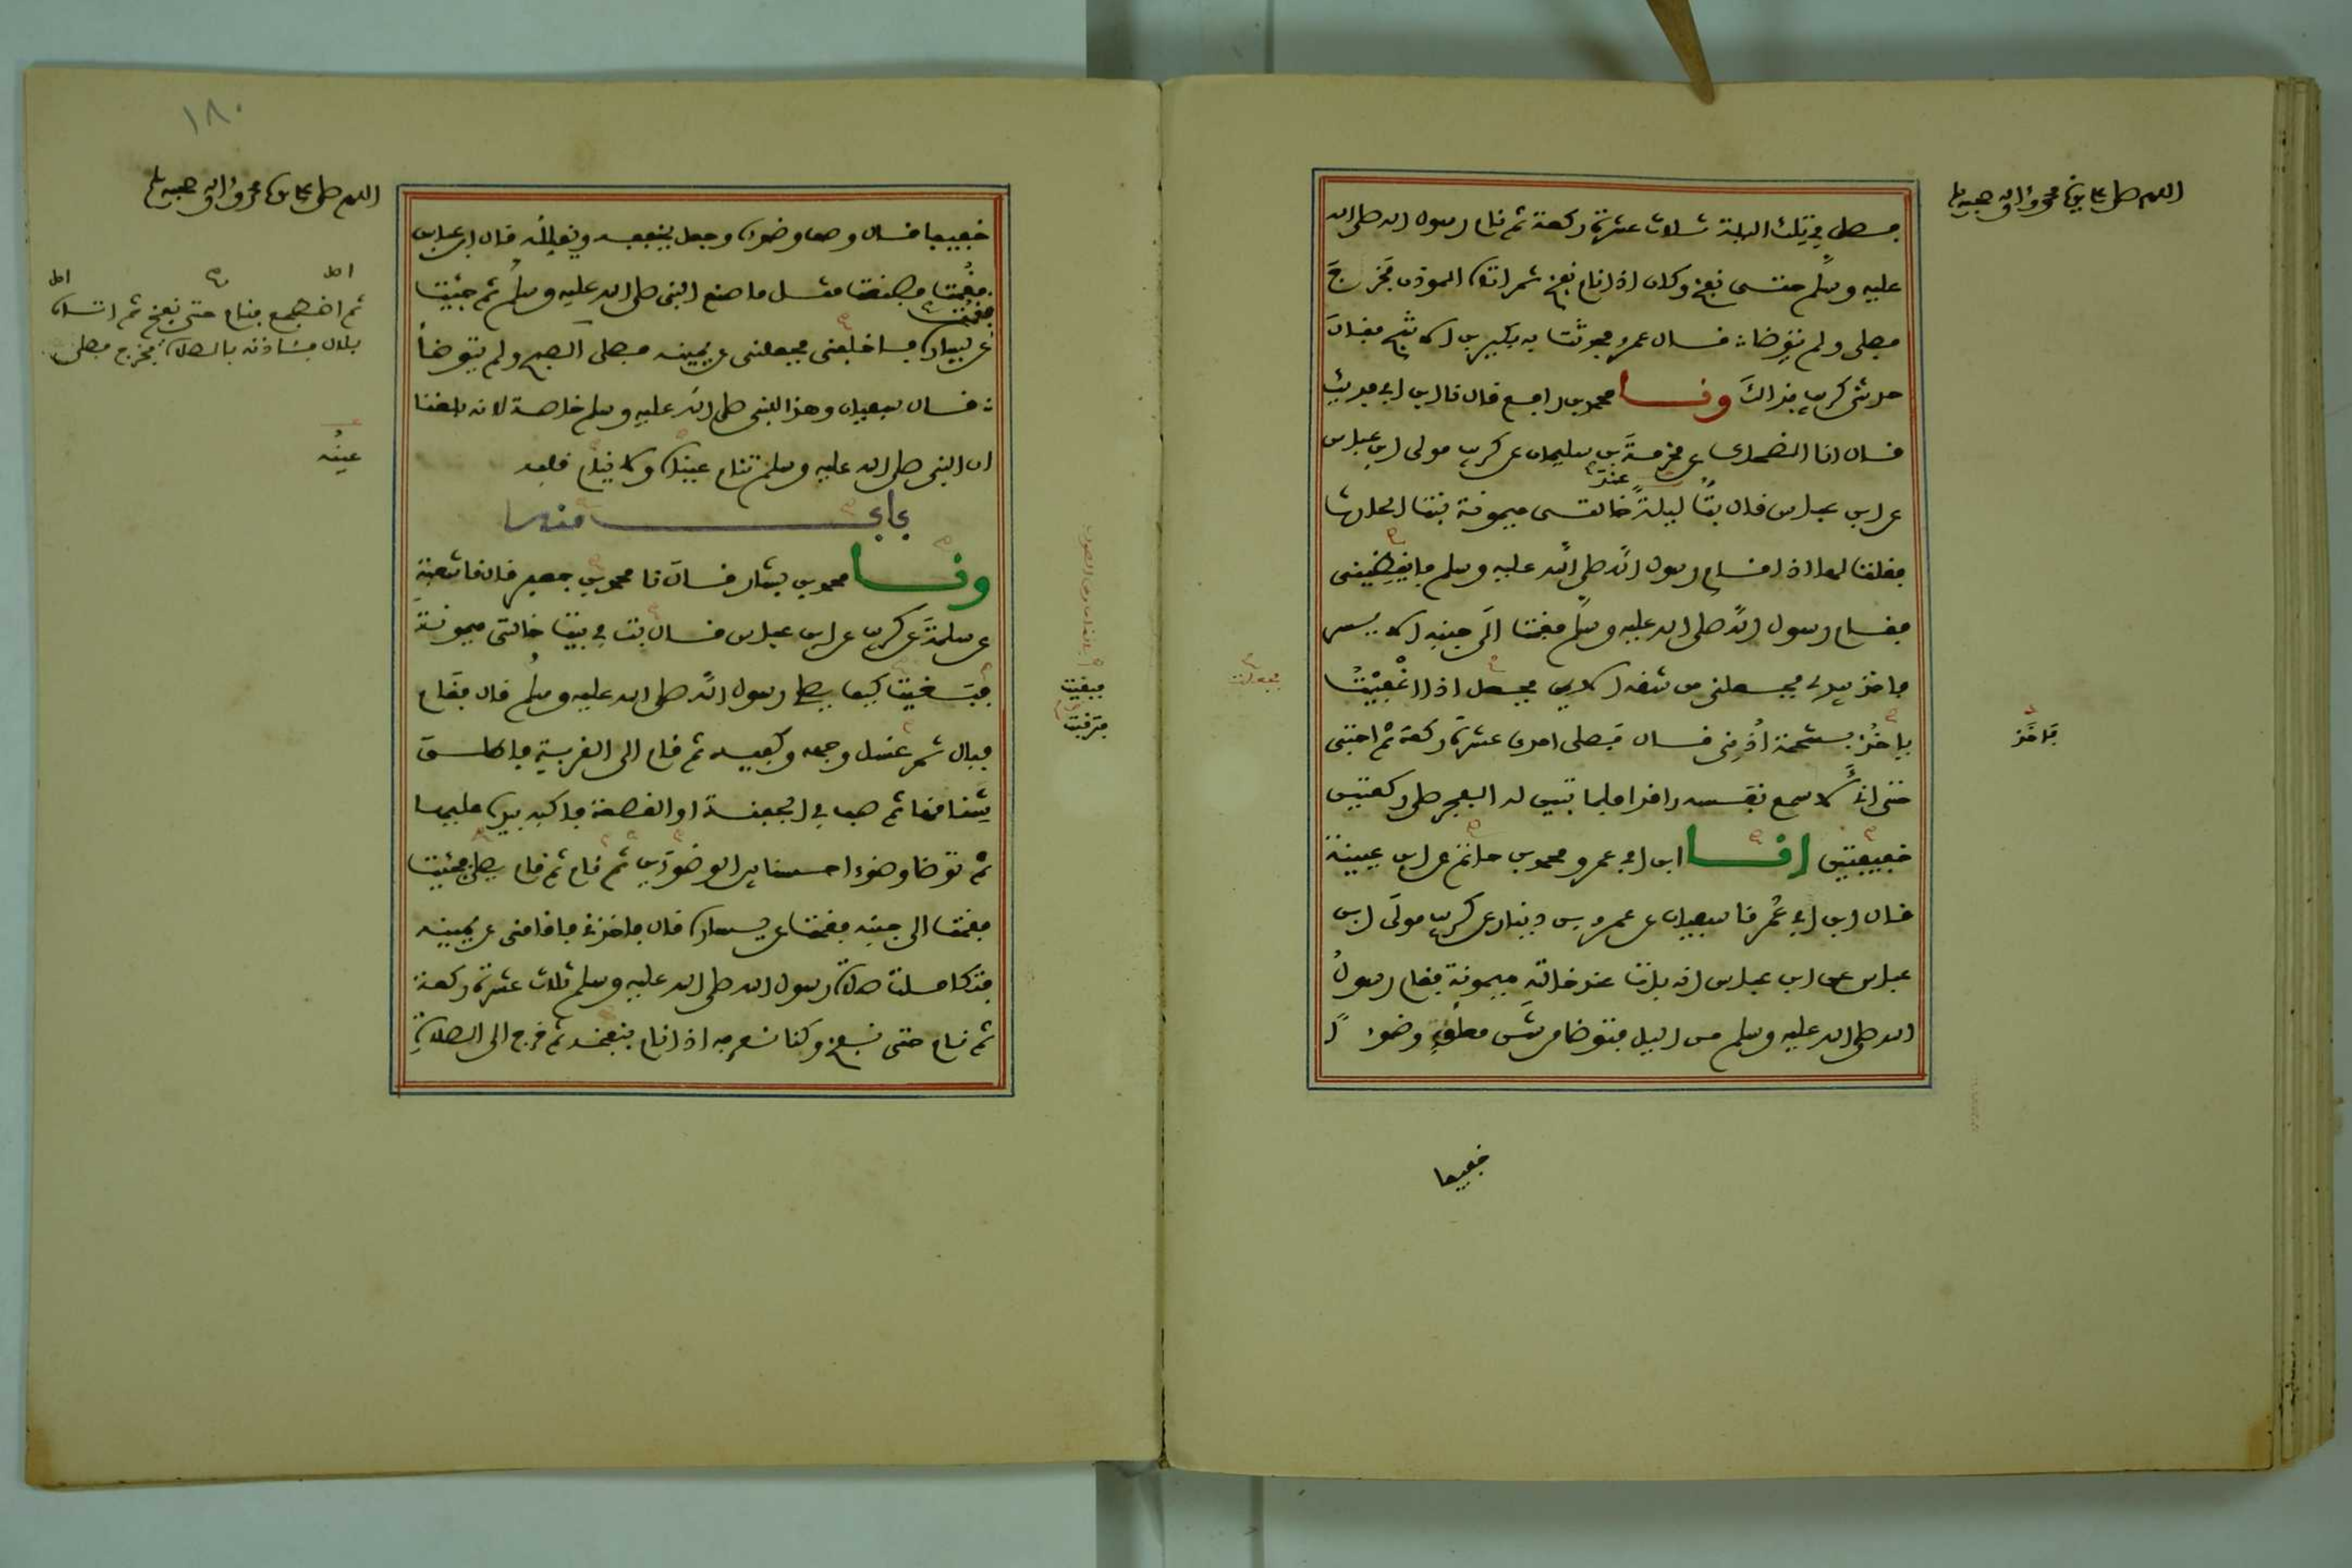 اللهم صل على سيدنا محمد وءاله وصحبه وسلم
فصلى في تلك الليلة ثلاث عشرة ركعة ثم نام رسول الله صلى الله
عليه وسلم حتى نفخ وكان اذا نام نفخ ثم اتاه الموذن فخرج
فصلى ولم يتوضا قال عمرو فحدثت به بكير بن الاشج فقال
حدثنى كريب بذالك ونا محمد بن رافع قال نا ابن ابي فديك
قال انا الضحاك عن مخرمة بن سليمان عن كريب مولى ابن عباس
عند
عن ابن عباس قال بت ليلة خالتى ميمونة بنت الحارث
فقلت لها اذا قام رسول الله صلى الله عليه وسلم فايقظينى
فقام رسول الله صلى الله عليه وسلم فقمت الى جنبه الايسر
فاخذ بيدي فجعلنى من شقه الايمن فجعل اذا اغفيت
ياخذ بشحمة اذنى قال فصلى احدى عشرة ركعة ثم احتبى
فاخذ
حتى انى لاسمع نفسه راقدا فلما تبين له الفجر صلى ركعتين
خفيفتين انا ابن ابي عمر ومحمد بن حاتم عن ابن عيينة
قال ابن ابي عمر نا سفيان عن عمرو بن دينار عن كريب مولى ابن
عباس عن ابن عباس انه بات عند خالته ميمونة فقام رسول
الله صلى الله عليه وسلم من الليل فتوضا من شن معلق وضوءا
خفيفا
١٨٠
اللهم صل على سيدنا محمد وءاله وصحبه وسلم
خفيفا قال وصف وضوءه وجعل يخففه ويقلله قال ابن عباس
فقمت فصنعت مثل ما صنع النبى صلى الله عليه وسلم ثم جئت
فقمت
عن يساره فاخلفنى فجعلنى عن يمينه فصلى الصبح ولم يتوضا
اصل ثم اضطجع فنام حتى نفخ ثم اتاه اصل
بلال فئاذنه بالصلاة فخرج فصلى
قال سفيان وهذا للنبى صلى الله عليه وسلم خاصة لانه بلغنا
ان النبى صلى الله عليه وسلم تنام عيناه ولا ينام قلبه
عينه
باب منه
ونا محمد بن بشار قال نا محمد بن جعفر قال نا شعبة
عن سلمة عن كريب عن ابن عباس قال بت في بيت خالتى ميمونة
فبقيت كيف يصلى رسول الله صلى الله عليه وسلم قال فقام
فبقيت
فرقبت
فبال ثم غسل وجهه وكفيه ثم نام ثم قام الى القربة فاطلق
شناقها ثم صب في الجفنة او القصعة فاكبه بيده عليها
ثم توضا وضوءا حسنا بين الوضوءين ثم قام ثم قام يصلى فجئت
فقمت الى جنبه فقمت عن يساره قال فاخذنى فاقامنى عن يمينه
فتكاملت صلاة رسول الله صلى الله عليه وسلم ثلاث عشرة ركعة
ثم نام حتى نفخ وكنا نعرفه اذا نام بنفخه ثم خرج الى الصلاة